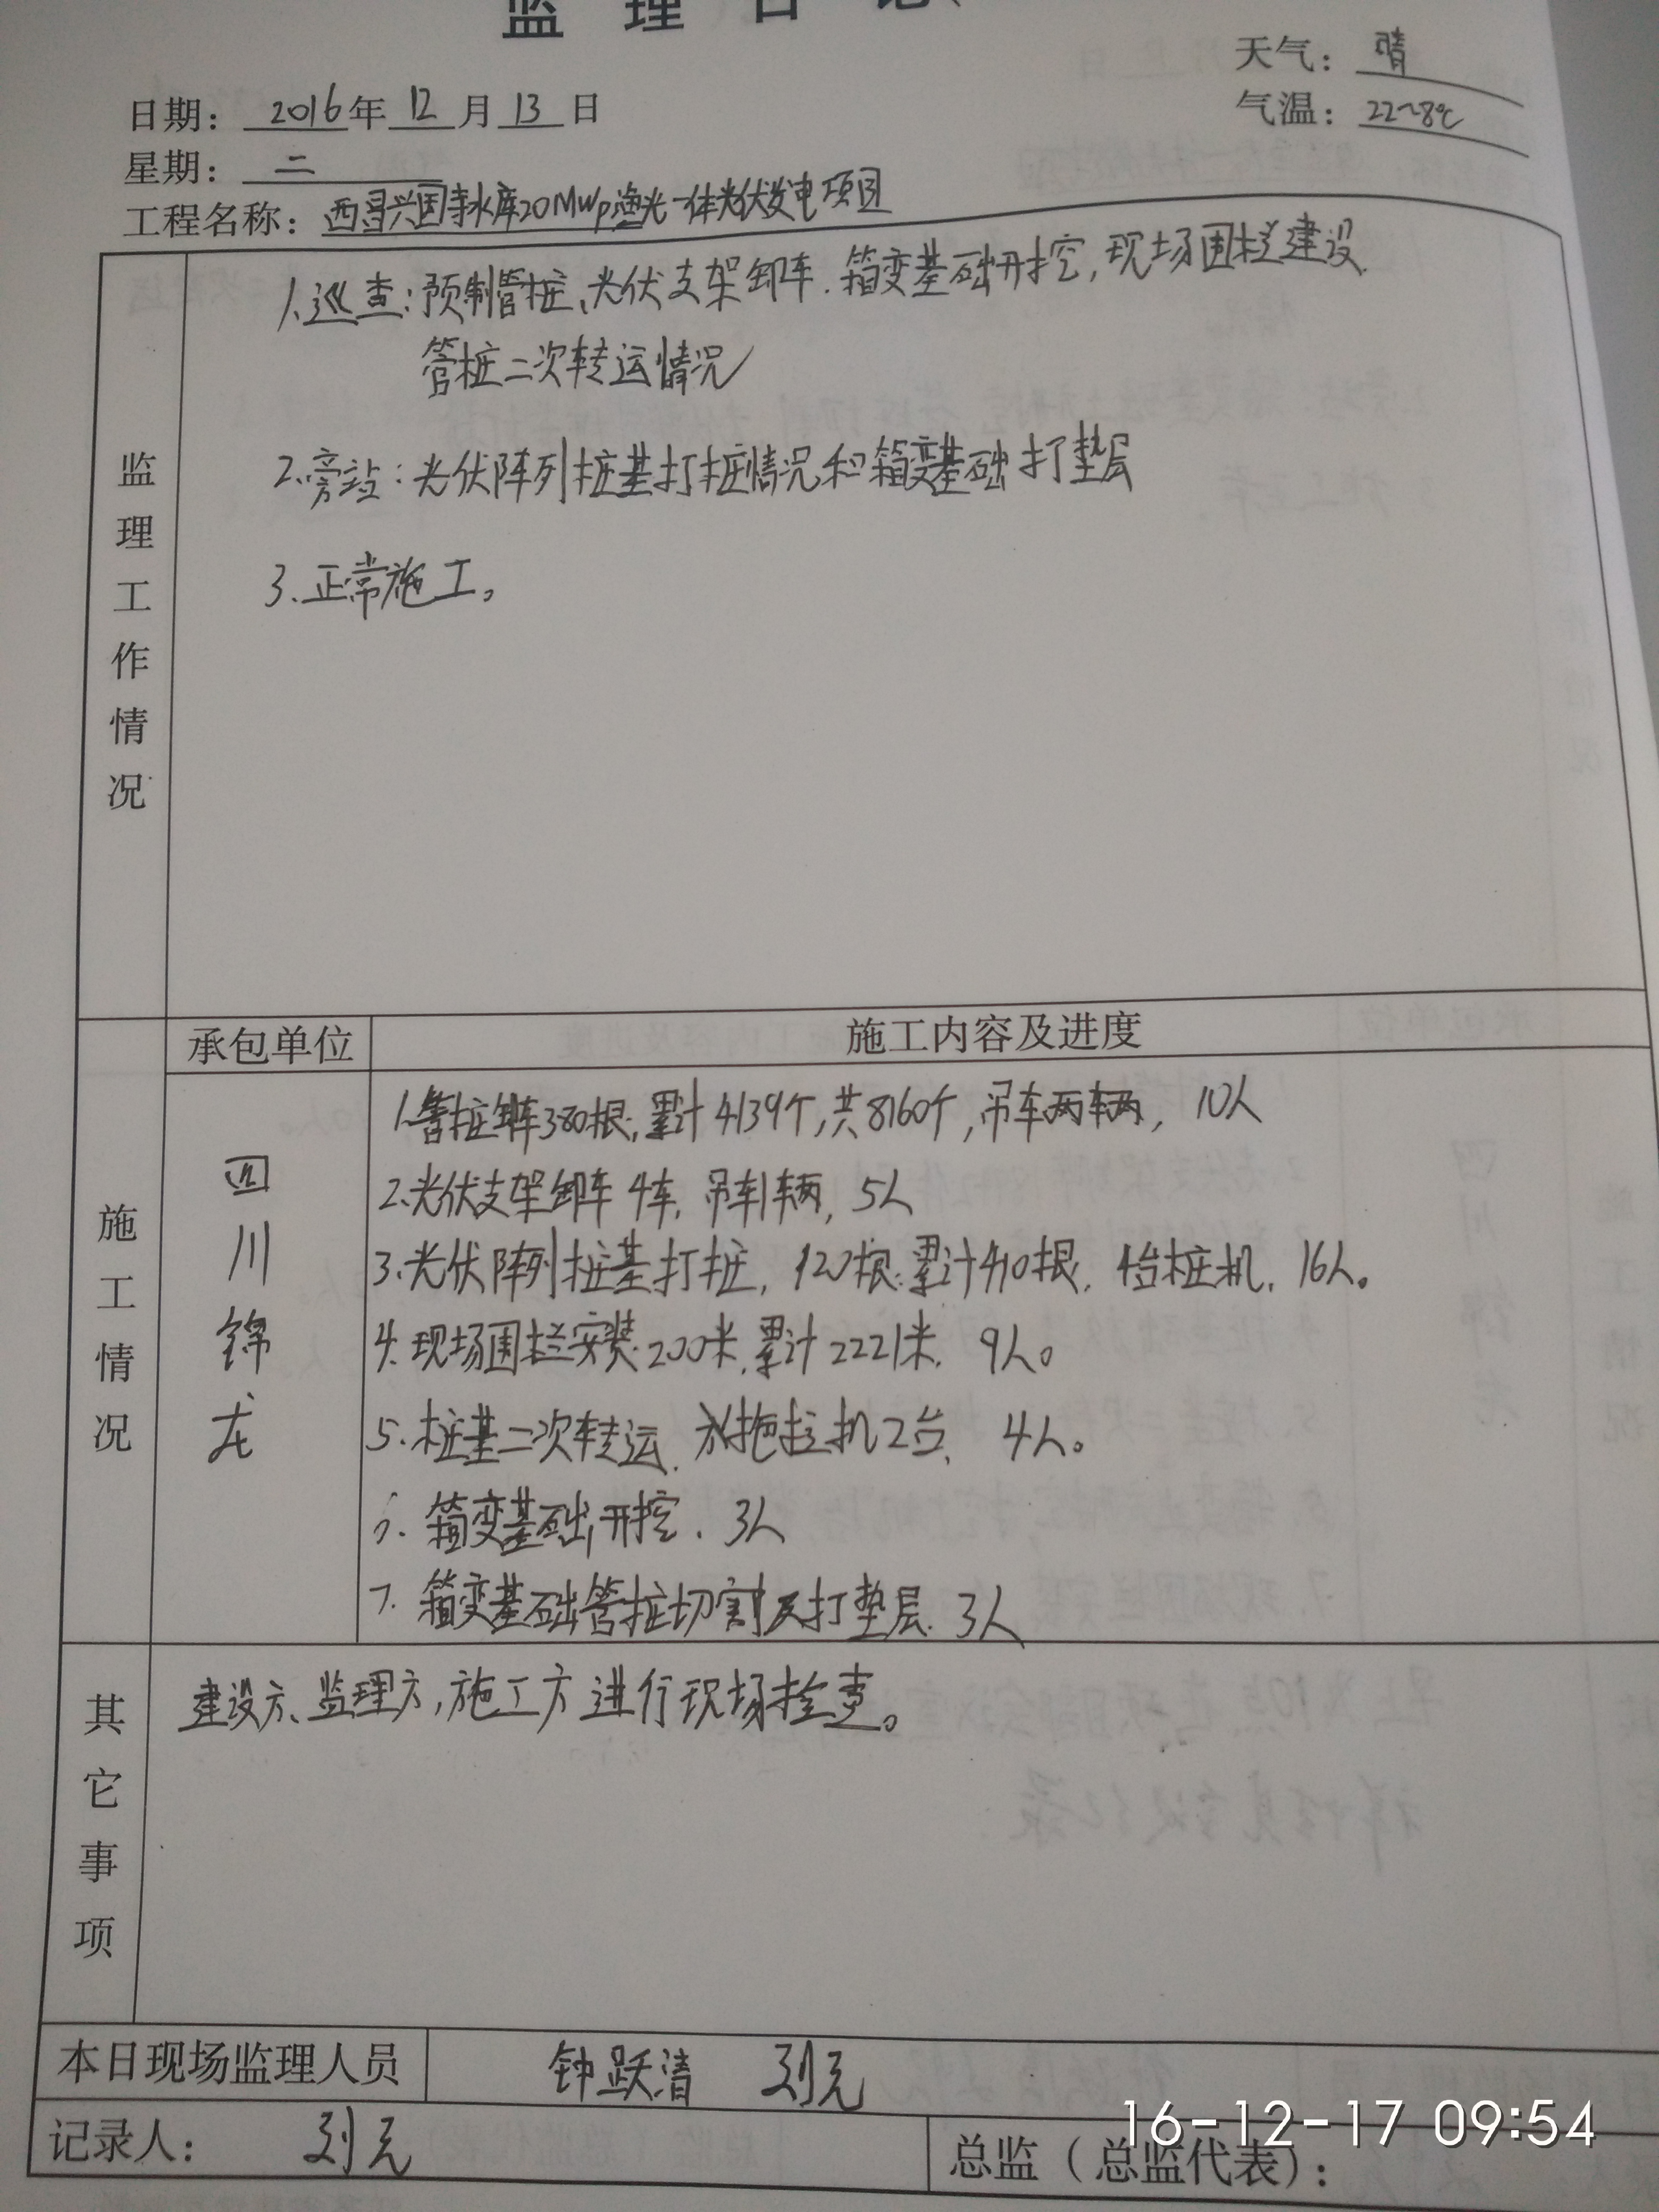 监理日记
天气：晴
日期：2016年12月13日
气温：22~8℃
星期：二
工程名称：西昌兴国寺水库20MWp渔光一体光伏发电项目
监理工作情况
1.巡查：预制管桩、光伏支架卸车.箱变基础开挖,现场围栏建设.
管桩二次转运情况
2.旁站：光伏阵列桩基打桩情况和箱变基础打垫层
3.正常施工。
承包单位 施工内容及进度
施工情况
四川锦龙
1.管桩卸车380根,累计4139个,共8160个,吊车两辆, 10人
2.光伏支架卸车4车,吊车1辆, 5人
3.光伏阵列桩基打桩, 120根.累计410根, 4台桩机. 16人。
4.现场围栏安装.200米,累计2221米. 9人。
5.桩基二次转运. 拖拉机2台, 4人。
6.箱变基础开挖. 3人
7.箱变基础管桩切割及打垫层. 3人
其它事项
建设方、监理方,施工方进行现场检查。
本日现场监理人员 钟跃清 刘元
记录人：刘元
总监（总监代表）：
16-12-17 09:54